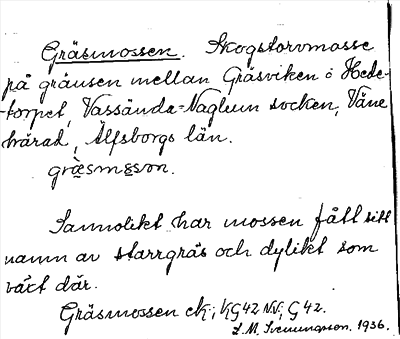 Gräsmossen. Skogstorvmosse
på gränsen mellan Gräsviken o Hede-
torpet, Vassända-Naglum socken, Väne
härad, Älfsborgs län.
græsmosson.
Sannolikt har mossen fått sitt
namn av starrgräs och dylikt som
växt där.
Gräsmossen ek; KG42 NV; G 42.
1936.